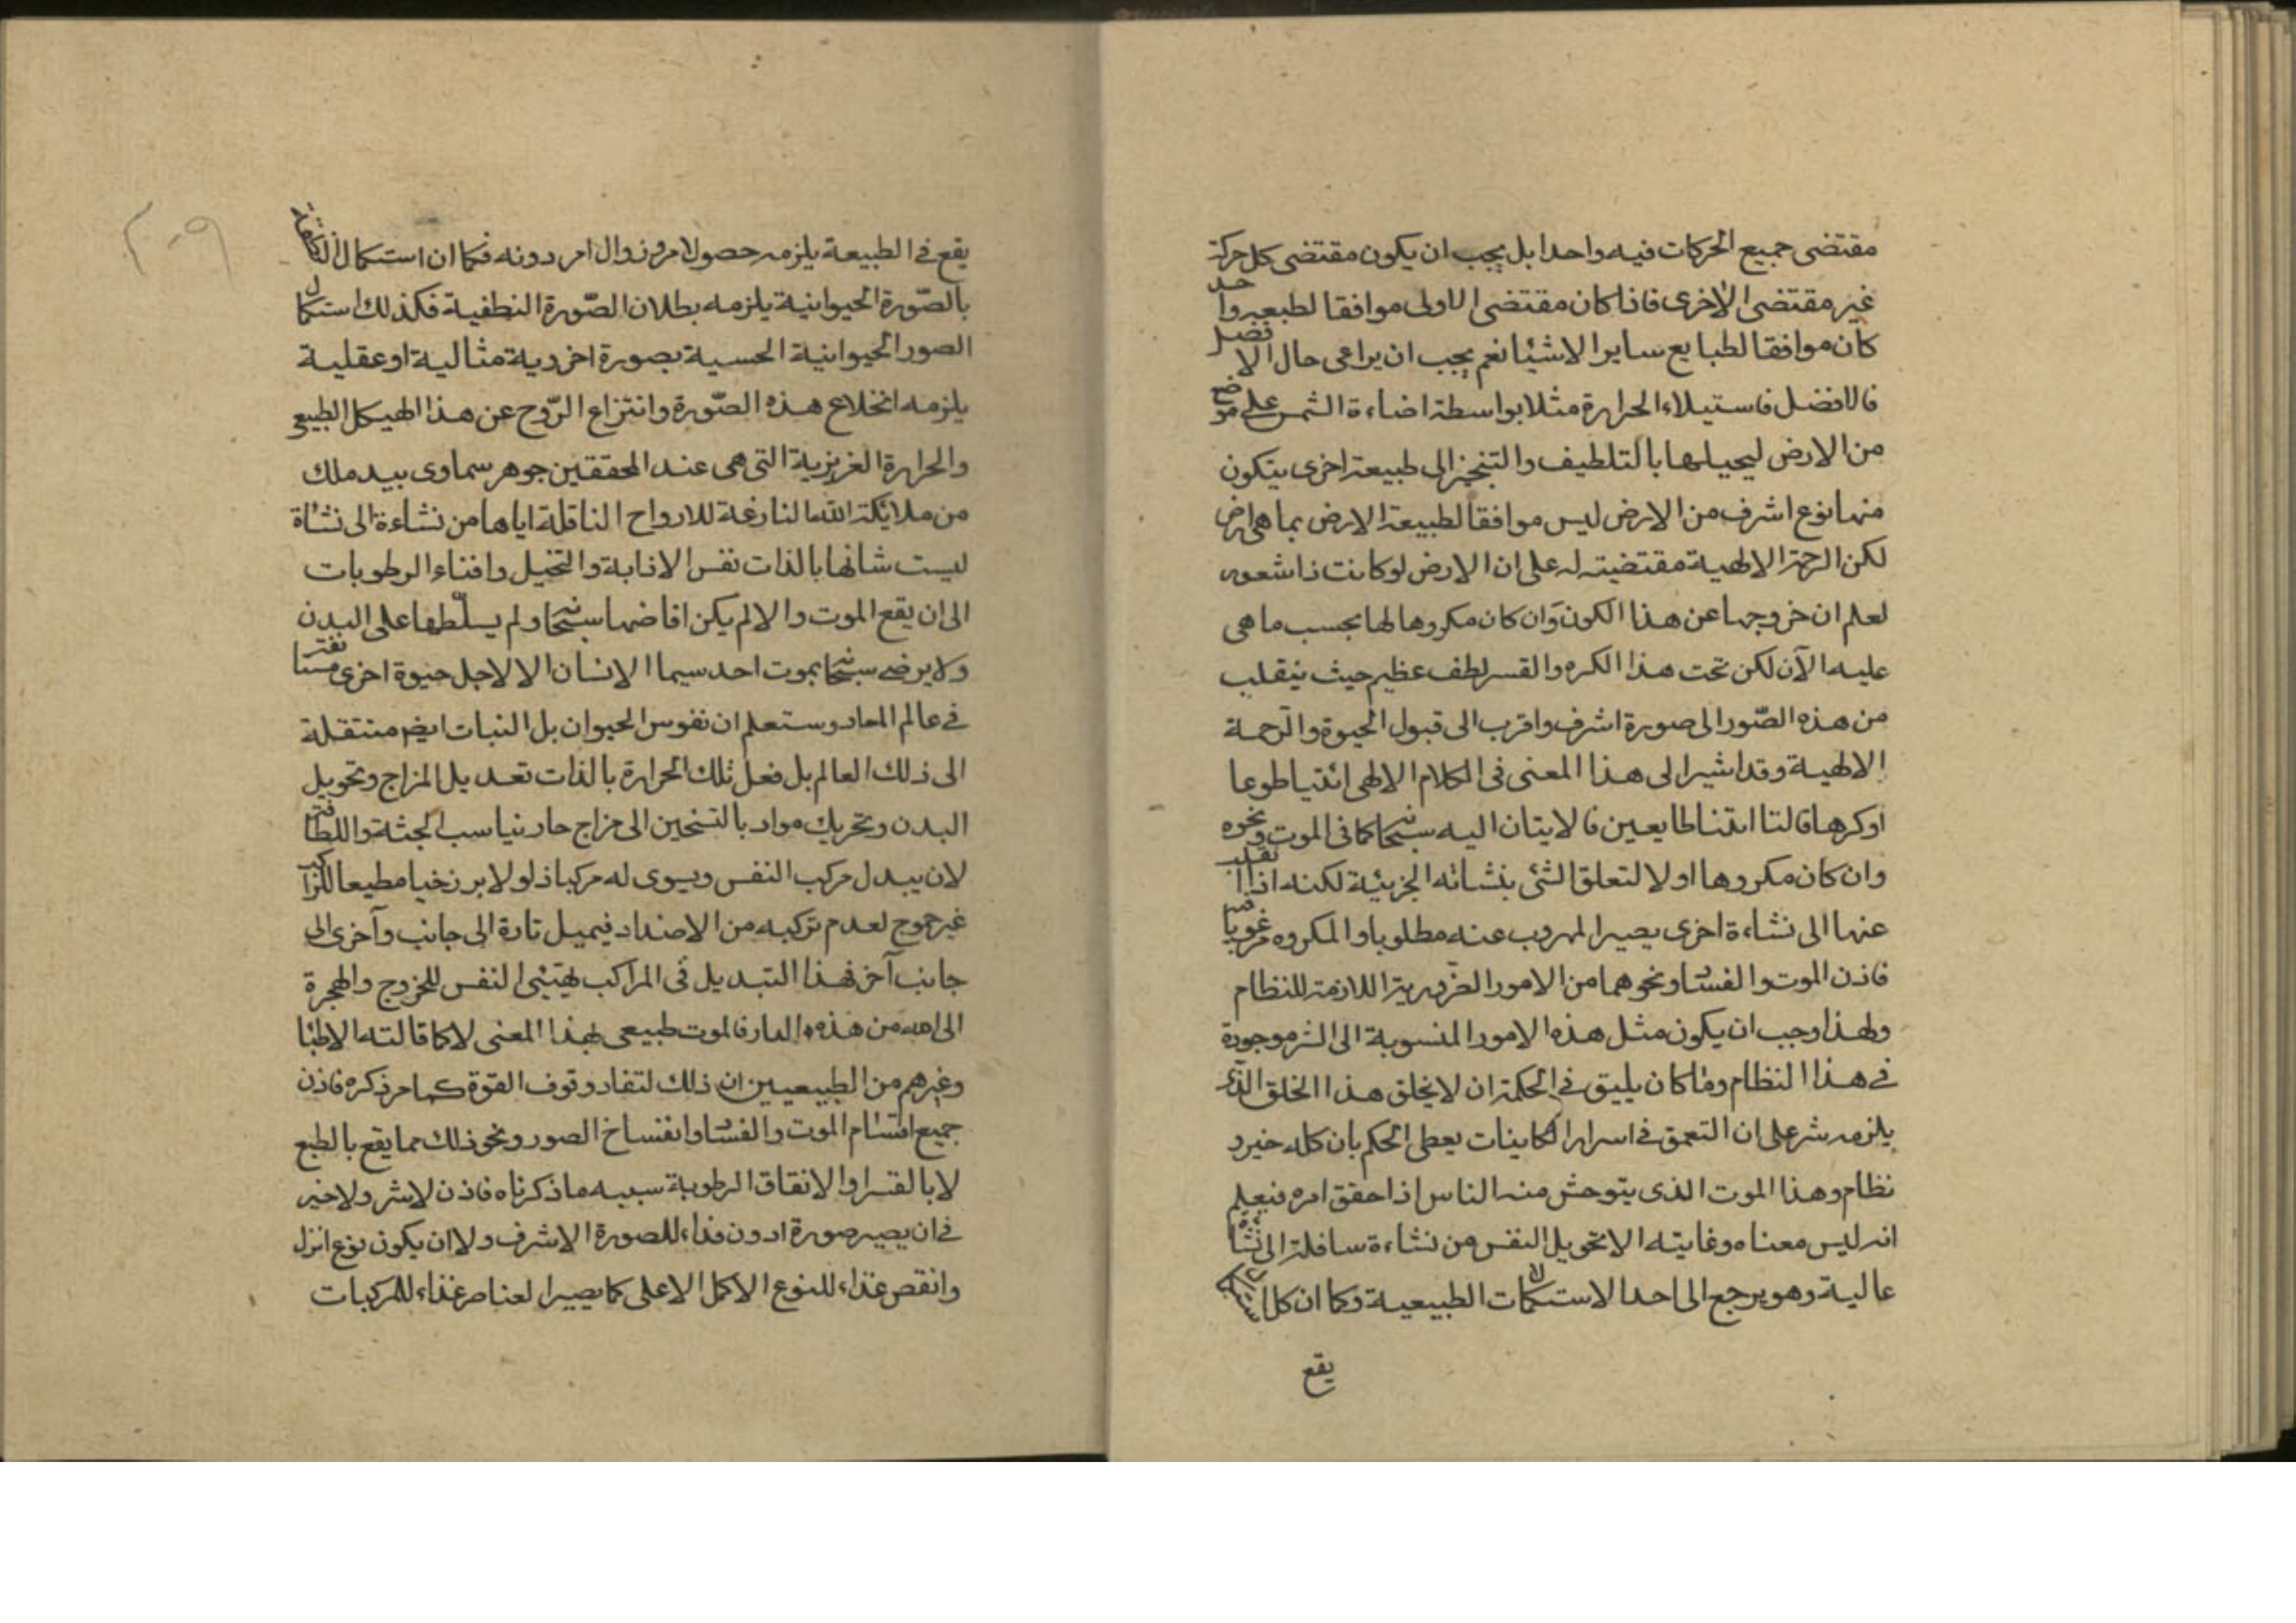 مقتضى جميع الحركات فيه واحدا بل يجب ان يكون مقتضى كل حركة
غير مقتضى الاخرى فاذا كان مقتضى الاولى موافقا لطبيعة واحد
كان موافقا لطبايع ساير الاشيا نعم يجب ان يراعى حال الافضل
فالافضل فاستيلاء الحرارة مثلا بواسطة اضاءة الشمس على موضع
من الارض ليحيلها بالتلطيف والتبخير الى طبيعة اخرى يتكون
منها نوع اشرف من الارض ليس موافقا لطبيعة الارض بما هى ارض
لكن الرحمة الالهية مقتضية له على ان الارض لو كانت ذا شعور
لعلم ان خروجها عن هذا الكون وان كان مكروها لها بحسب ما هى
عليه الآن لكن تحت هذا الكره والقسر لطف عظيم حيث ينقلب
من هذه الصّور الى صورة اشرف واقرب الى قبول الحيوة والرّحمة
الالهية وقد اشير الى هذا المعنى فى الكلام الالهى ائتيا طوعا
اوكرها قالتا اتينا طايعين فالاتيان اليه سبحٰا كما فى الموت ونحوه
وان كان مكروها اولا لتعلق الشئ بنشاته الجزئية لكنه اذا انقلب
عنها الى نشاءة اخرى يصير المهروب عنه مطلوبا والمكروه مرغوبا
فاذن الموت والفسٰا ونحوهما من الامور الضّرورية اللازمة للنظام
ولهذا وجب ان يكون مثل هذه الامور المنسوبة الى الشر موجودة
فى هذا النظام وما كان يليق فى الحكمة ان لا يخلق هذا الخلق الذى
يلزمه شر على ان التعمق فى اسرار الكاينات يعطى الحكم بان كله خير و
نظام وهذا الموت الذى يتوحش منه الناس اذا حقق امره فيعلم
انه ليس معناه وغايته الا تحويل النفس من نشاءة سافلة الى نشأة
عالية وهو يرجع الى احد الاستكمالات الطبيعية وكما ان كل استكمال
يقع
يقع فى الطبيعة يلزمه حصول امر وزوال امر دونه فكما ان استكمال
بالصّورة الحيوانية يلزمه بطلان الصّورة النطفية فكذلك استكمال
الصور الحيوانية الحسية بصورة اخروية مثالية او عقلية
يلزمه انخلاع هذه الصّورة وانتزاع الرّوح عن هذا الهيكل الطبيعى
والحرارة الغريزية التى هى عند المحققين جوهر سماوى بيد ملك
من ملائكة الله النازعة للارواح الناقلة اياها من نشاءة الى نشأة
ليست شانها بالذات نفس الاذابة والتحليل وافناء الرطوبات
الى ان يقع الموت والا لم يكن افاضها سبحٰا ولم يسلّطها على البدن
ولا يرضى سبحٰا بموت احد سيما الانسان الا لاجل حيوة اخرى مستانفة
فى عالم المعاد وستعلم ان نفوس الحيوان بل النبات ايضٰ منتقلة
الى ذلك العالم بل فعل تلك الحرارة بالذات تعديل المزاج وتحويل
البدن وتحريك مواد بالتسخين الى مزاج حار يناسب الجثة واللطافة
لان يبدل مركب النفس ويسوى له مركبا ذلولا برزخيا مطيعا للراكب
غير جموح لعدم تركبه من الاضداد فيميل تارة الى جانب وآخرى الى
جانب آخر فهذا التبديل فى المراكب تهيئى النفس للخروج والهجرة
الى الله من هذه الدار فالموت طبيعى بهذا المعنى لا كما قالته الاطبٰا
وغيرهم من الطبيعيين ان ذلك لتفاد وقوف القوة كما مر ذكره فاذن
جميع اقسٰام الموت والفسٰا وانفساخ الصور ونحو ذلك مما يقع بالطبع
لا بالقسر او الاتفاق الرطوبة سببه ما ذكرناه فاذن لا شر ولا خير
فى ان يصير صورة ادون فداء للصورة الاشرف ولا ان يكون نوع انزل
وانقص غذاء للنوع الاكمل الاعلى كما يصير العناصر غذاء للمركبات